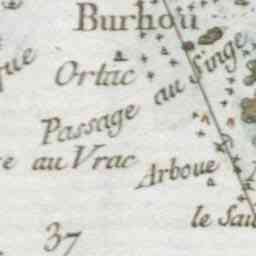 Burhou
que
Ortac
au Singe
Passage
au Vrac
Arboue
le Sau
37